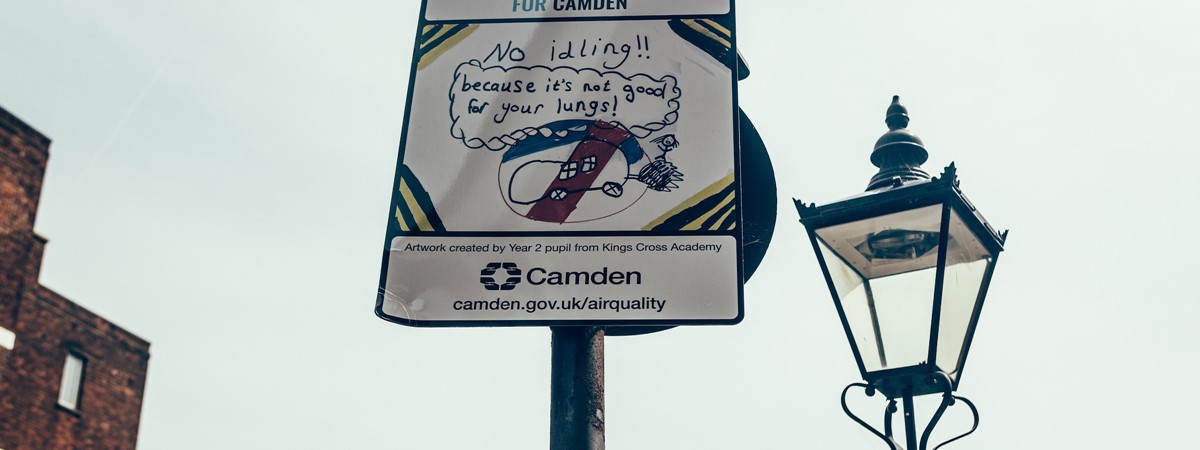 FOR CAMDEN
No idling!!
because it's not good
for your lungs!
Artwork created by Year 2 pupil from Kings Cross Academy
Camden
camden.gov.uk/airquality